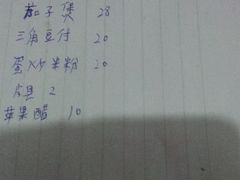 茄子煲 28
三角豆付 20
蛋炒米粉 20
点具 2
苹果醋 10